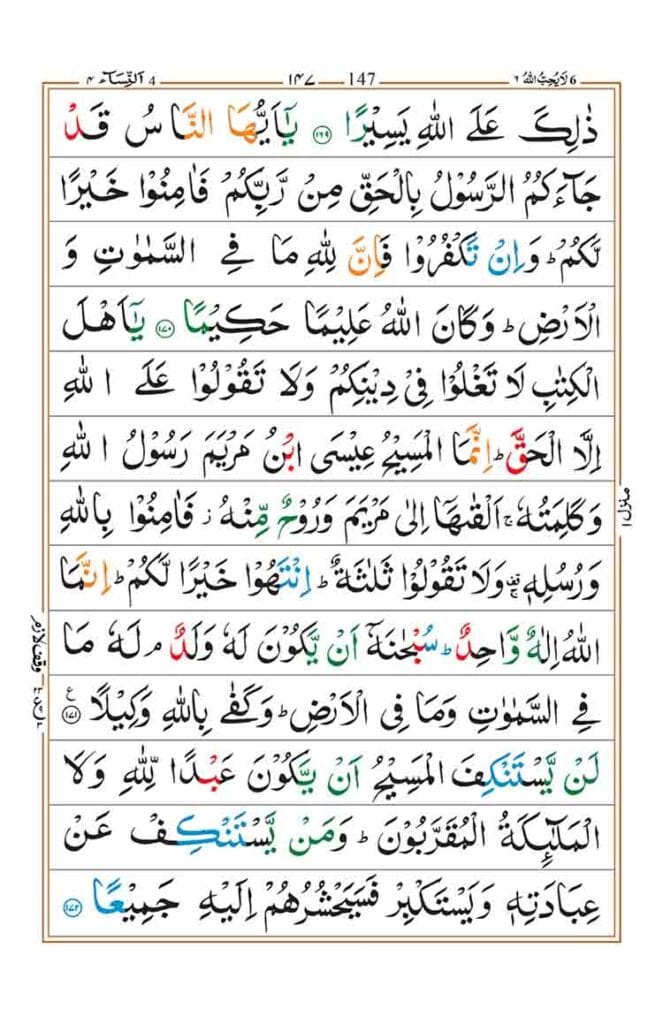 لَا يُحِبُّ اللهُ ٦ 6 147 ١٤٧ 4 اَلنِّسَآء ٤
ذٰلِكَ عَلَى اللهِ يَسِيْرًا ۝١٦٩ يٰۤاَيُّهَا النَّاسُ قَدْ
جَآءَكُمُ الرَّسُوْلُ بِالْحَقِّ مِنْ رَّبِّكُمْ فَاٰمِنُوْا خَيْرًا
لَّكُمْ ؕ وَاِنْ تَكْفُرُوْا فَاِنَّ لِلّٰهِ مَا فِي السَّمٰوٰتِ وَ
الْاَرْضِ ؕ وَكَانَ اللهُ عَلِيْمًا حَكِيْمًا ۝١٧٠ يٰۤاَهْلَ
الْكِتٰبِ لَا تَغْلُوْا فِيْ دِيْنِكُمْ وَلَا تَقُوْلُوْا عَلَى اللهِ
اِلَّا الْحَقَّ ؕ اِنَّمَا الْمَسِيْحُ عِيْسَى ابْنُ مَرْيَمَ رَسُوْلُ اللهِ
وَكَلِمَتُهٗ ۚ اَلْقٰىهَاۤ اِلٰى مَرْيَمَ وَرُوْحٌ مِّنْهُ ؗ فَاٰمِنُوْا بِاللهِ
وَرُسُلِهٖ ۫ۚ وَلَا تَقُوْلُوْا ثَلٰثَةٌ ؕ اِنْتَهُوْا خَيْرًا لَّكُمْ ؕ اِنَّمَا
اللهُ اِلٰهٌ وَّاحِدٌ ؕ سُبْحٰنَهٗۤ اَنْ يَّكُوْنَ لَهٗ وَلَدٌ ۘ لَهٗ مَا
فِي السَّمٰوٰتِ وَمَا فِي الْاَرْضِ ؕ وَكَفٰى بِاللهِ وَكِيْلًا ۝١٧١ ع
لَنْ يَّسْتَنْكِفَ الْمَسِيْحُ اَنْ يَّكُوْنَ عَبْدًا لِّلّٰهِ وَلَا
الْمَلٰٓئِكَةُ الْمُقَرَّبُوْنَ ؕ وَمَنْ يَّسْتَنْكِفْ عَنْ
عِبَادَتِهٖ وَيَسْتَكْبِرْ فَسَيَحْشُرُهُمْ اِلَيْهِ جَمِيْعًا ۝١٧٢
منزل ١
وقف لازم